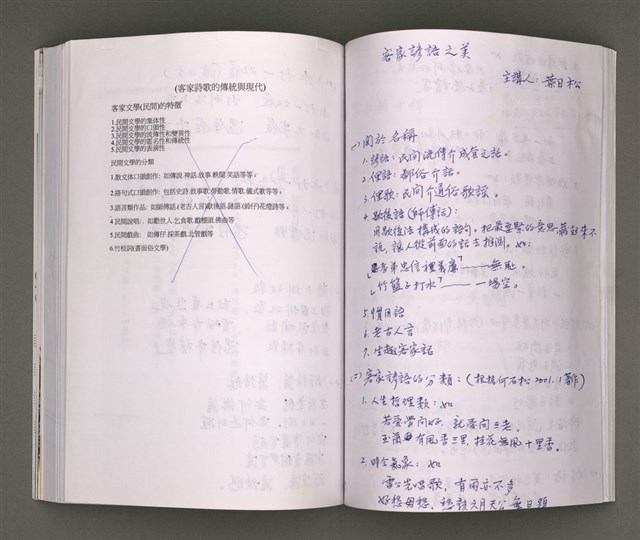 (客家詩歌的傳統與現代)
客家文學(民間)的特徵
1.民間文學的集体性
2.民間文學的口頭性
3.民間文學的流傳性和變異性
4.民間文學的匿名性和傳統性
5.民間文學的表演性
民間文學的分類
1.散文体口頭創作: 如傳說.神話.故事.軼聞.笑話等等,
2.語句式口頭創作: 包括史詩.故事歌.勞動歌.情歌.儀式歌等等,
4.民間說唱. 如勸世人.乞食歌.戲棚頭.佛曲等
5.民間戲曲: 如傳仔.採茶戲.北管戲等
6.竹枝詞(書面俗文學)
客家諺語之美
主講人:葉日松
(一)關於名稱
1. 諺語:民間流傳介成套之語。
2. 俚語:鄙俗介話。
3. 俚歌:民間介通俗歌謠。
4. 歇後語(師傅話):
用歇後法構成的語句,把最要緊的意思藏起來不
說,讓人從前面的話去推測。如:
孝弟忠信禮義廉」——無恥。
「竹籃子打水」——一場空。
5. 慣用語
6. 老古人言
7. 生趣客家話
(二)客家諺語的分類:(根據何石松2001.1著作)
1. 人生哲理類:如
若愛學問好,就愛問三老。
有風香三里,桂花無風十里香。
2. 時令氣象:如
雷公先唱歌,有雨也不多